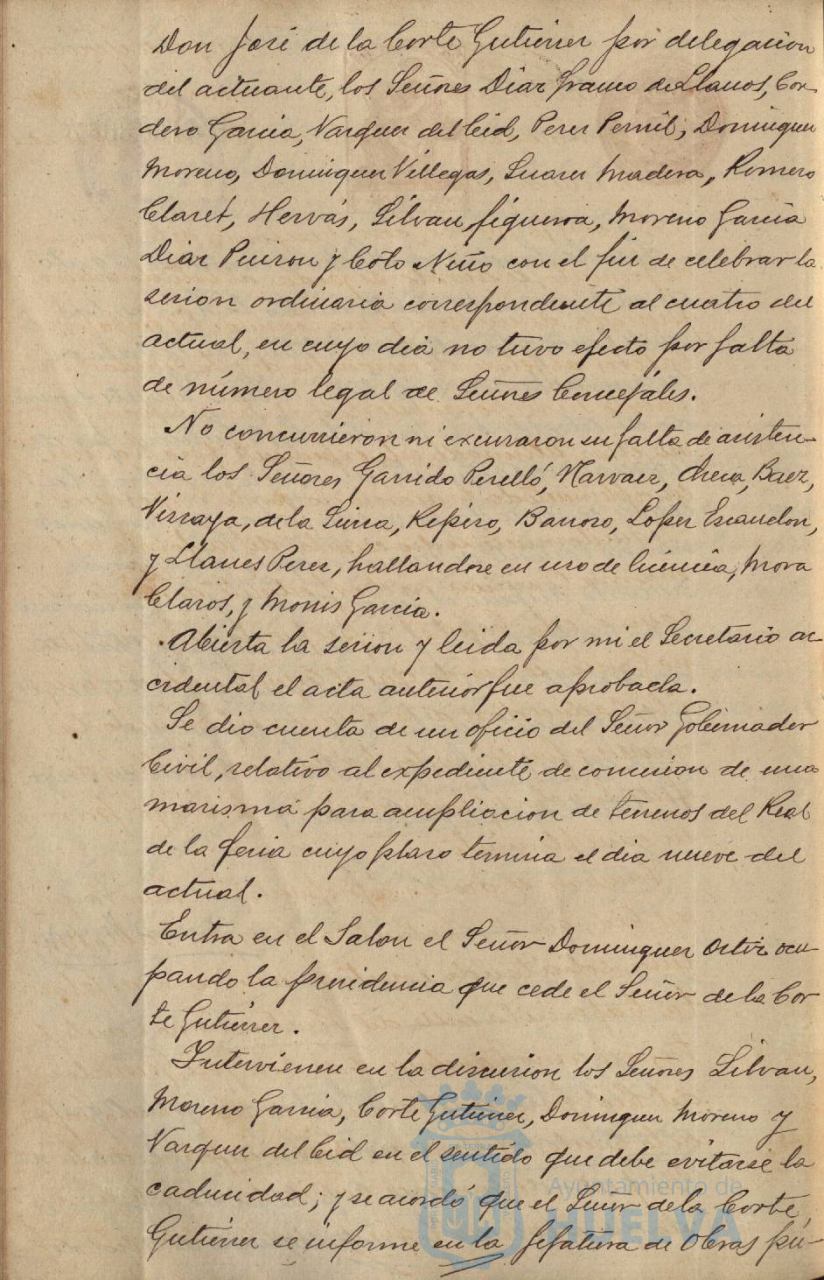 Don José de la Corte Gutierrez por delegacion
del actuante, los Señores Diaz Franco de Llanos, Cor-
dero Garcia, Vazquez del Cid, Perez Pernil, Dominguez
Moreno, Dominguez Villegas, Suarez Madera, Romero
Claret, Hervás, Silvan, Figueroa, Moreno Garcia
Diaz Puizon y Coto Niño con el fin de celebrar la
sesion ordinaria correspondiente al cuatro del
actual, en cuyo dia no tuvo efecto por falta
de número legal de Señores Concejales.
No concurrieron ni excusaron su falta de asisten-
cia los Señores Garrido Perelló, Narvaez, Baez,
Vizcaya, de la Sierra, Repiso, Barroso, Lopez Escandon,
y Llanes Perez, hallandose en uso de licencia, Mora
Claros, y Monis Garcia.
Abierta la sesion y leida por mi el Secretario ac-
cidental el acta anterior fue aprobada.
Se dio cuenta de un oficio del Señor Gobernador
Civil, relativo al expediente de concesion de una
marisma para ampliacion de terrenos del Real
de la feria cuyo plazo termina el dia nueve del
actual.
Entra en el Salon el Señor Dominguez Ortiz ocu-
pando la presidencia que cede el Señor de la Cor-
te Gutierrez.
Intervienen en la discusion los Señores Silvan,
Moreno Garcia, Corte Gutierrez, Dominguez Moreno y
Vazquez del Cid en el sentido que debe evitarse la
caducidad; y se acordó que el Señor de la Corte
Gutierrez se informe en la Jefatura de Obras pú-
Ayuntamiento de
HUELVA